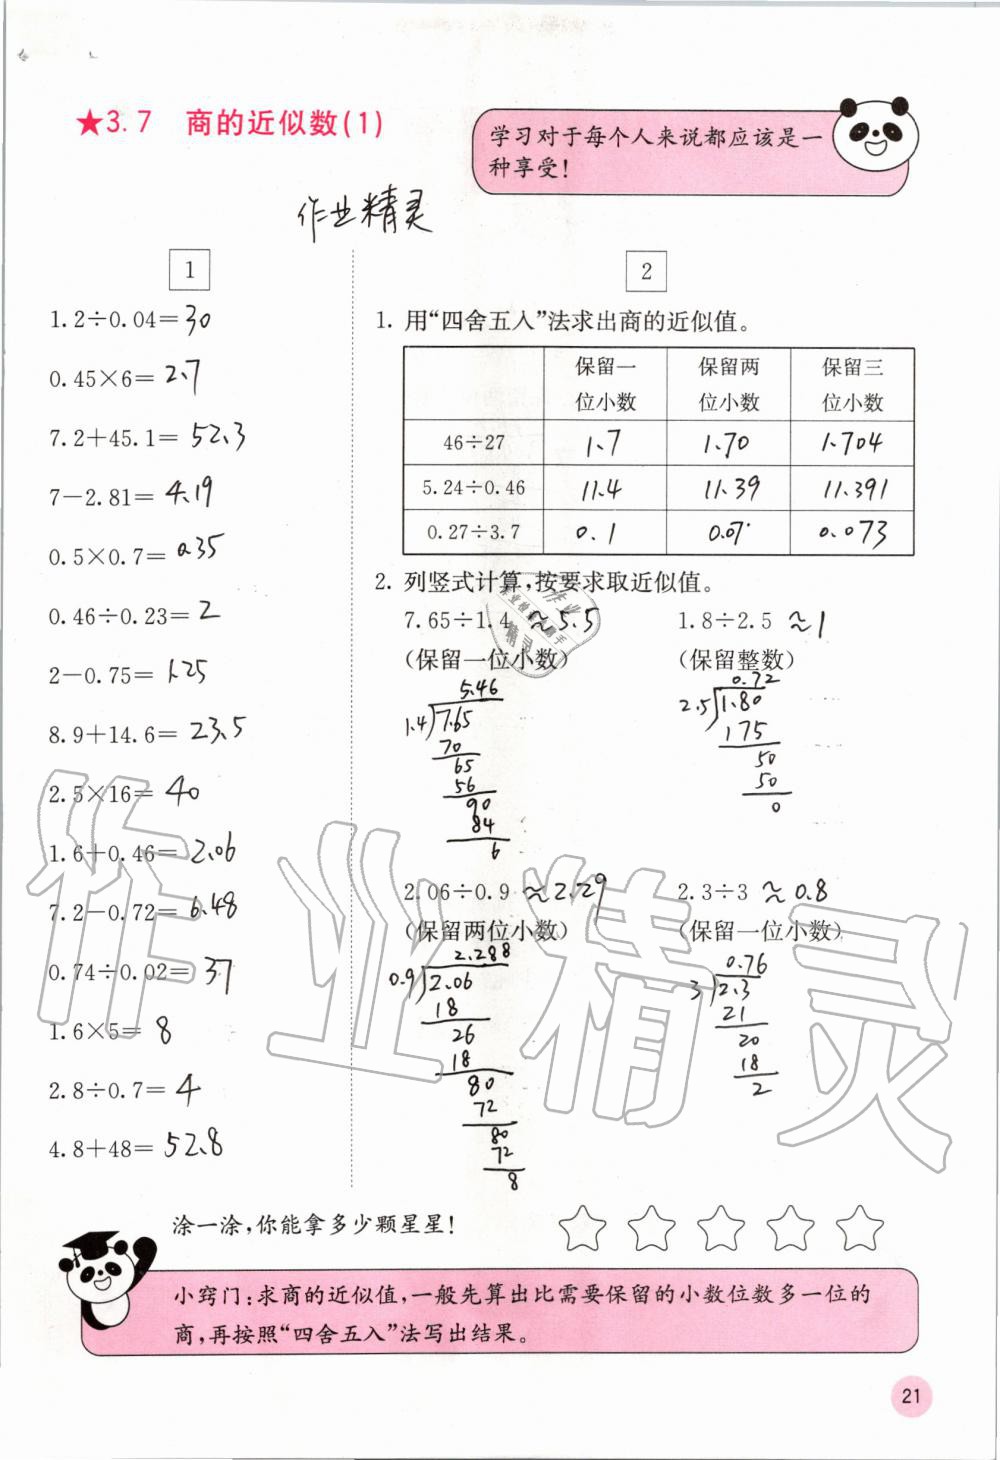 ★3.7 商的近似数(1)
学习对于每个人来说都应该是一
种享受!
作业精灵
1
1.2÷0.04=30
0.45×6=2.7
7.2+45.1=52.3
7-2.81=4.19
0.5×0.7=0.35
0.46÷0.23=2
2-0.75=1.25
8.9+14.6=23.5
2.5×16=40
1.6+0.46=2.06
7.2-0.72=6.48
0.74÷0.02=37
1.6×5=8
2.8÷0.7=4
4.8+48=52.8
2
1. 用“四舍五入”法求出商的近似值。
保留一位小数 保留两位小数 保留三位小数
46÷27 1.7 1.70 1.704
5.24÷0.46 11.4 11.39 11.391
0.27÷3.7 0.1 0.07 0.073
2. 列竖式计算,按要求取近似值。
7.65÷1.4≈5.5
(保留一位小数)
5.46
1.4 7.65
70
65
56
90
84
6
1.8÷2.5≈1
(保留整数)
0.72
2.5 1.80
175
50
50
0
2.06÷0.9≈2.29
(保留两位小数)
2.288
0.9 2.06
18
26
18
80
72
80
72
8
2.3÷3≈0.8
(保留一位小数)
0.76
3 2.3
21
20
18
2
作业精灵
涂一涂,你能拿多少颗星星!
小窍门:求商的近似值,一般先算出比需要保留的小数位数多一位的
商,再按照“四舍五入”法写出结果。
21